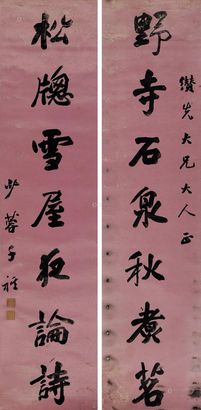 野寺石泉秋煮茗
讚先大兄大人正
松牕雪屋夜論詩
少蓉